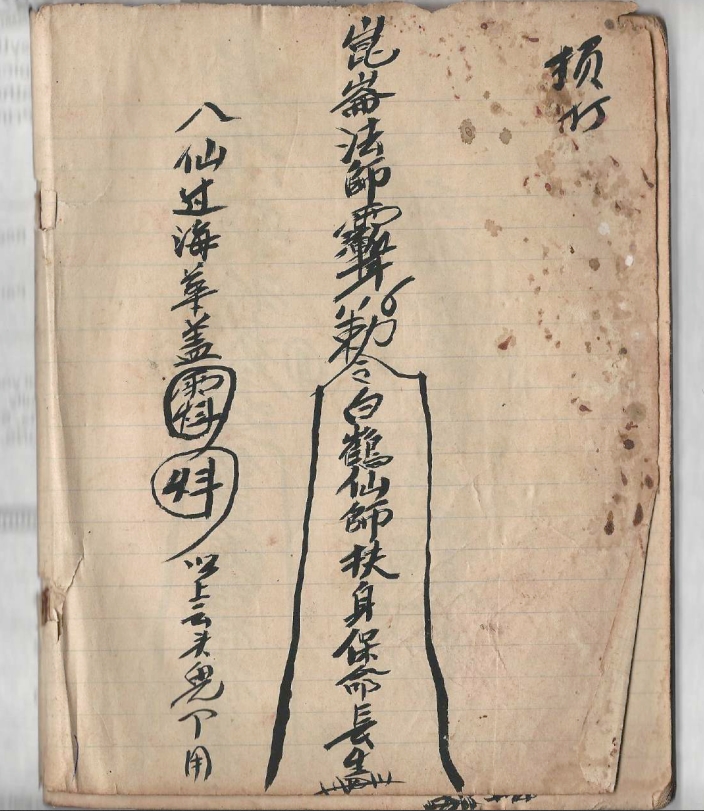 崑崙法師 敕令白鶴仙師扶身保命長生
八仙过海華盖 以上云头鬼下用